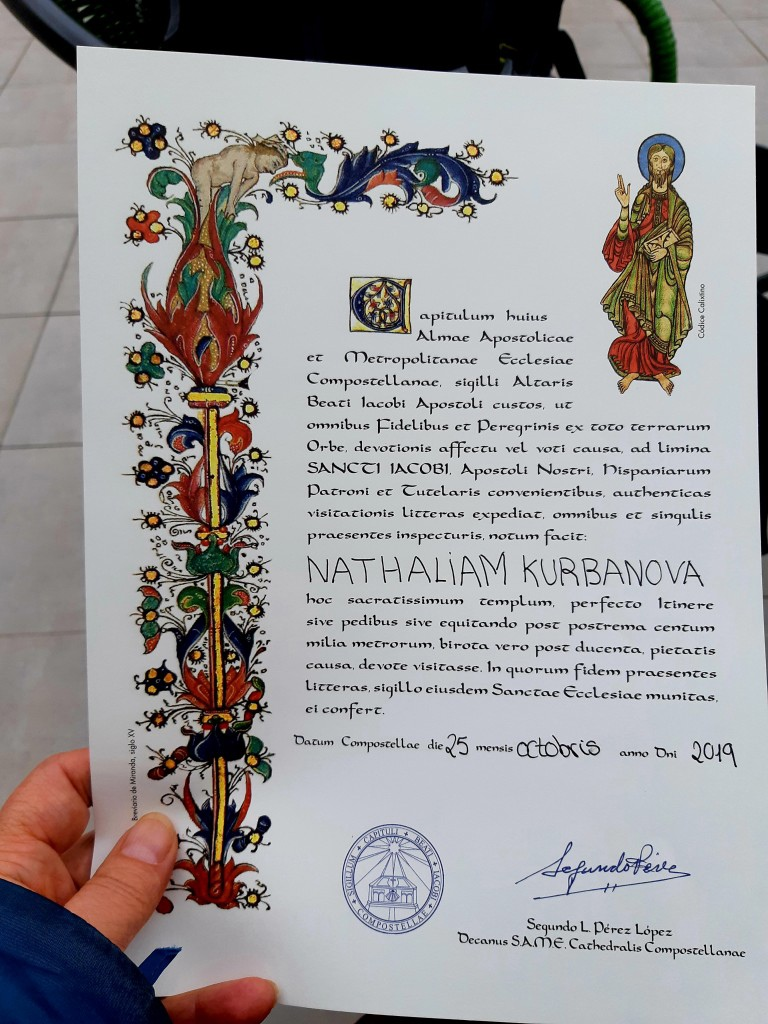 Capitulum huius
Almae Apostolicae
et Metropolitanae Ecclesiae
Compostellanae, sigilli Altaris
Beati Iacobi Apostoli custos, ut
omnibus Fidelibus et Peregrinis ex toto terrarum
Orbe, devotionis affectu vel voti causa, ad limina
SANCTI IACOBI, Apostoli Nostri, Hispaniarum
Patroni et Tutelaris convenientibus, authenticas
visitationis litteras expediat, omnibus et singulis
praesentes inspecturis, notum facit:
NATHALIAM KURBANOVA
hoc sacratissimum templum, perfecto Itinere
sive pedibus sive equitando post postrema centum
milia metrorum, birota vero post ducenta, pietatis
causa, devote visitasse. In quorum fidem praesentes
litteras, sigillo eiusdem Sanctae Ecclesiae munitas,
ei confert.
Datum Compostellae die 25 mensis octobris anno Dni 2019
Códice Calixtino
Breviario de Miranda, siglo XV
SIGILLUM CAPITULI BEATI IACOBI COMPOSTELLAE
Segundo Pérez
Segundo L. Pérez López
Decanus S.A.M.E. Cathedralis Compostellanae